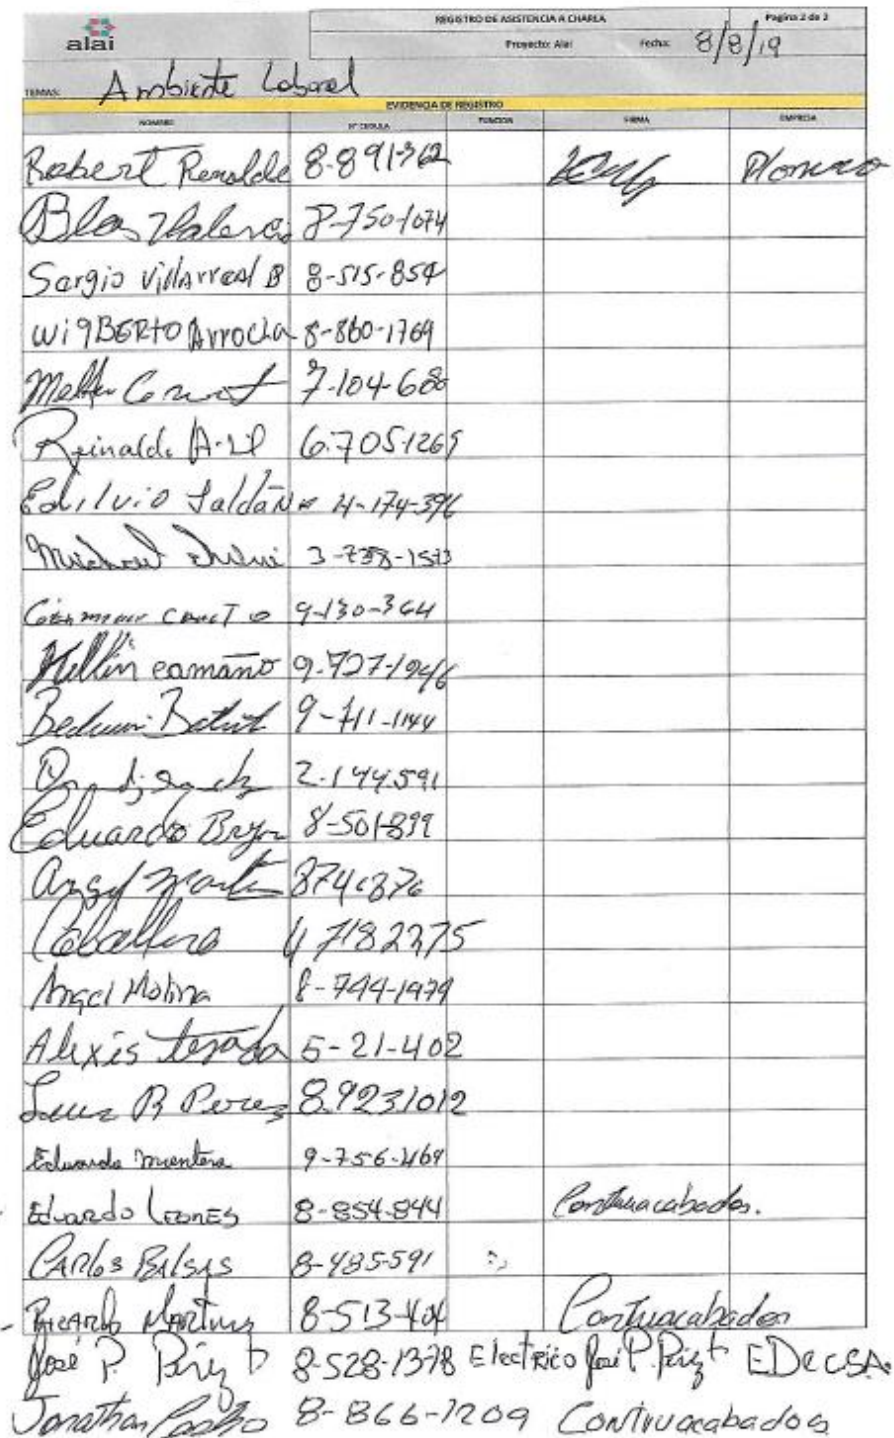 alai
REGISTRO DE ASISTENCIA A CHARLA
Pagina 2 de 2
Proyecto: Alai Fecha: 8/8/19
TEMAS: Ambiente Laboral
EVIDENCIA DE REGISTRO
NOMBRE N° CEDULA FUNCION FIRMA EMPRESA
Robert 8-891-362
Blas Valencia 8-750-1074
Sergio Villarreal B 8-515-854
WigBERTO Arrocha 8-860-1769
7-104-680
Reinaldo 6-705-1269
Edilvio Saldaña 4-174-396
Michael 3-738-1513
9-130-364
camaño 9-727-1946
9-711-1144
2-144-591
Eduardo 8-501-899
Angel 8741876
Caballero 47182275
Angel Molina 8-744-1979
Alexis tejada 5-21-402
Luis R Perez 8.9231012
Eduardo montera 9-756-469
Eduardo Leones 8-854-844 Contruacabados.
CARlos BAlsAs 8-485-591
RicArdo MArtines 8-513-404 Contruacabados
José P. Pérez t 8-528-1378 Electrico José P. Pérez t EDECSA.
Jonathan Castro 8-866-1209 Contruacabados